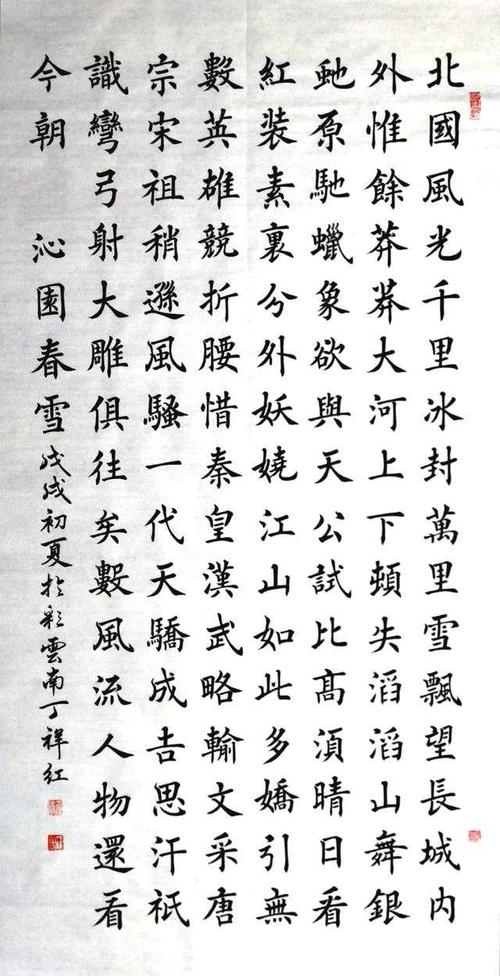 北國風光千里冰封萬里雪飄望長城内
外惟餘莽莽大河上下頓失滔滔山舞銀
虵原馳蠟象欲與天公試比高須晴日看
紅装素裏分外妖嬈江山如此多嬌引無
數英雄競折腰惜秦皇漢武略輸文采唐
宗宋祖稍遜風騷一代天驕成吉思汗祇
識彎弓射大雕俱往矣數風流人物還看
今朝 沁園春雪 戊戌初夏於彩雲南丁祥红